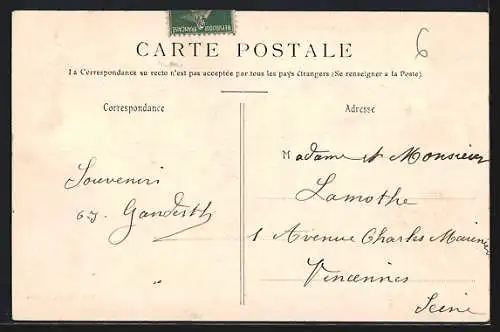 REPUBLIQUE FRANÇAISE
6
CARTE POSTALE
La Correspondance au recto n'est pas acceptée par tous les pays étrangers (Se renseigner à la Poste)
Correspondance
Souvenirs
Adresse
Madame et Monsieur
Lamothe
1 Avenue Charles Marinier
Vincennes
Seine